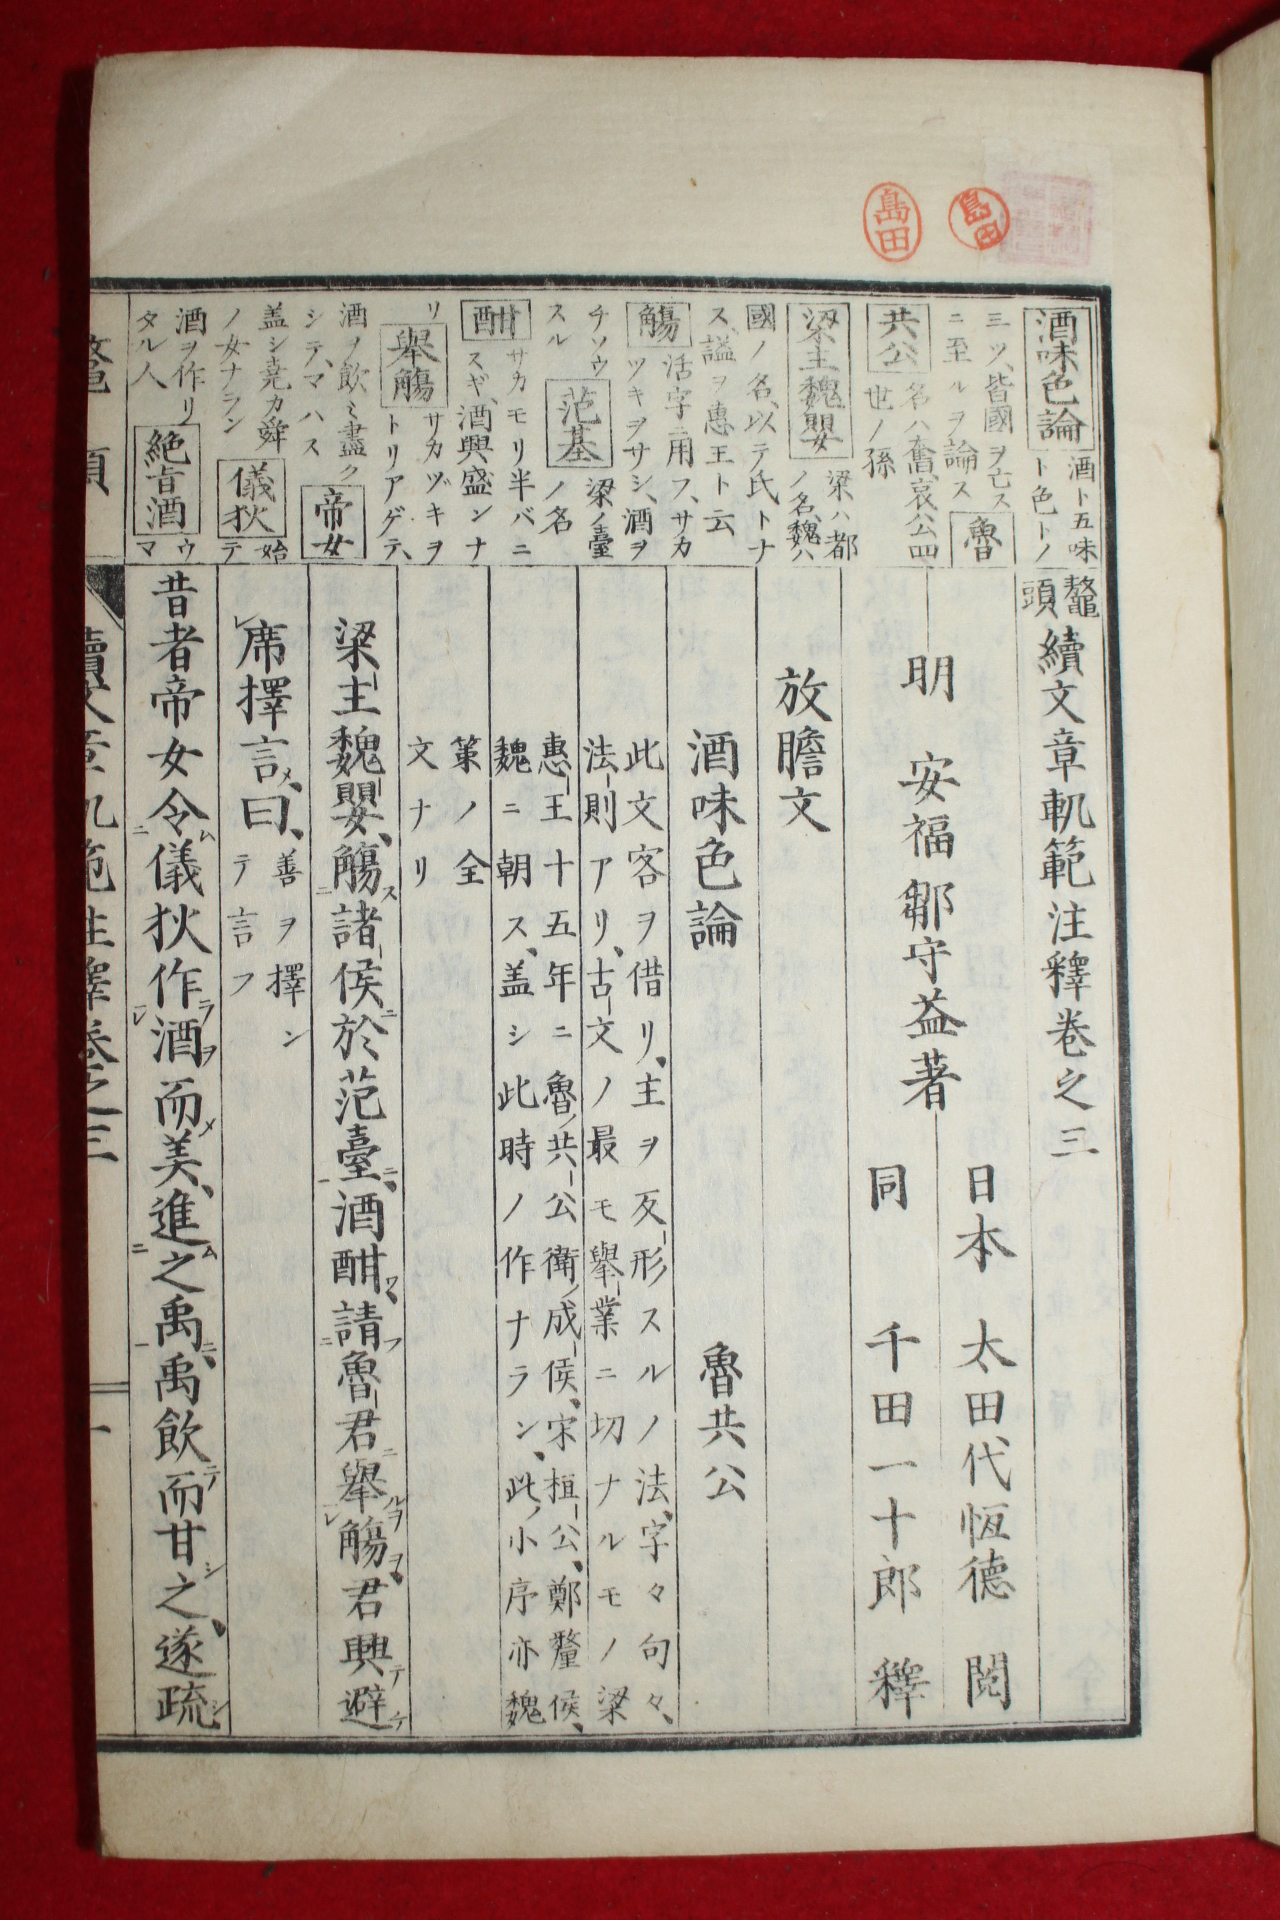 島田
島田
酒味色論 酒ト五味
ト色トノ
三ツ、皆國ヲ亡ス
ニ至ルヲ論ス 魯
共公 名ハ奮、哀公四
世ノ孫
梁主魏嬰 梁ハ都
ノ名、魏ハ
國ノ名、以テ氏トナ
ス、謚ヲ惠王ト云
觴 活字ニ用フ、サカ
ツキヲサシ、酒ヲ
チソウ
スル 范基 梁ノ臺
ノ名
酣 サカモリ半バニ
スギ、酒興盛ンナ
リ 舉觴 サカヅキヲ
トリアゲテ、
酒ヲ飲ミ盡ク
シテ、マハス 帝女
盖シ堯カ舜
ノ女ナラン 儀狄 始
テ
酒ヲ作リ
タル人 絶旨酒 ウ
マ
鼇頭 續文章軌範注釋卷之三
明 安福 鄒守益著
日本 太田代恆德 閲
同 千田一十郎 釋
放膽文
酒味色論 魯共公
此文客ヲ借リ、主ヲ反形スルノ法、字々句々、
法則アリ、古文ノ最モ舉業ニ切ナルモノ梁
惠王十五年ニ魯ノ共公衛ノ成侯、宋桓公、鄭釐侯、
魏ニ朝ス、盖シ此時ノ作ナラン、此ノ小序亦魏
策ノ全
文ナリ
梁主魏嬰、觴諸侯於范臺、酒酣請魯君舉觴、君興避
席擇言曰、 善ヲ擇ン
テ言フ
昔者帝女令儀狄作酒而美、進之禹、禹飲而甘之、遂疏
鼇頭 續文章軌範注釋卷之三 一